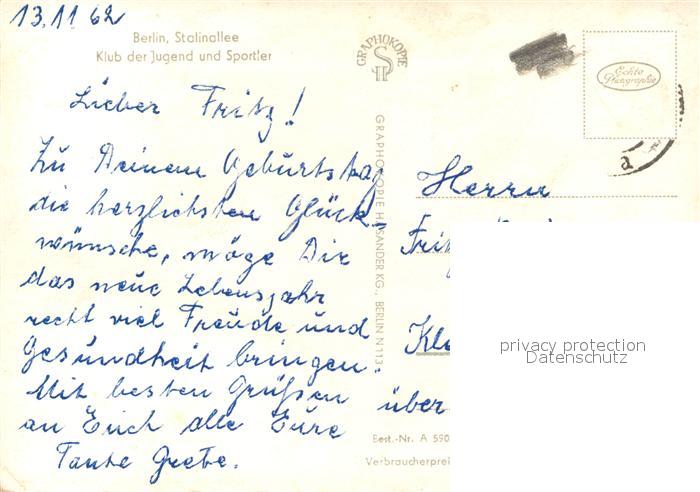 13.11.62
Berlin, Stalinallee
Klub der Jugend und Sportler
Lieber Fritz!
Zu Deinem Geburtstag
die herzlichsten Glück-
wünsche, möge Dir
das neue Lebensjahr
recht viel Freude und
Gesundheit bringen.
Mit besten Grüßen
an Euch alle Eure
Tante Grete.
GRAPHOKOPIE
GRAPHOKOPIE H. SANDER KG., BERLIN N 113
Echte
Photographie
Herrn
Kle
über
Best.-Nr. A 590
Verbraucherprei
privacy protection
Datenschutz